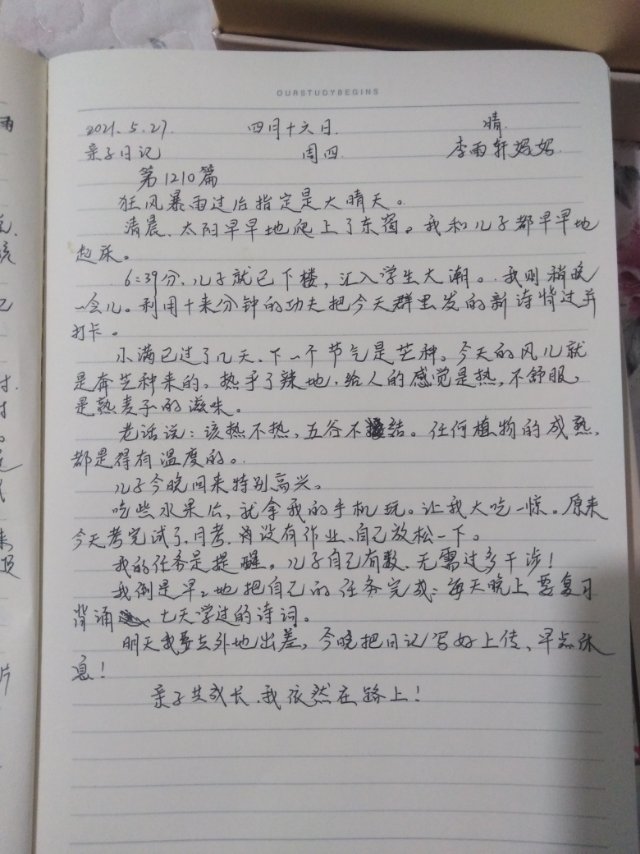 OURSTUDYBEGINS
2021.5.27. 四月十六日. 晴.
亲子日记 周四. 李雨轩妈妈.
第1210篇
狂风暴雨过后指定是大晴天。
清晨、太阳早早地爬上了东窗。我和儿子都早早地
起床。
6:39分、儿子就已下楼，汇入学生大潮。我则稍晚
一会儿。利用十来分钟的功夫把今天群里发的新诗背过并
打卡。
小满已过了几天、下一个节气是芒种。今天的风儿就
是奔芒种来的。热乎了辣地、给人的感觉是热，不舒服。
是熟麦子的滋味。
老话说：该热不热，五谷不结。任何植物的成熟，
都是得有温度的。
儿子今晚回来特别高兴。
吃些水果后，就拿我的手机玩。让我大吃一惊。原来
今天考完试了、月考、肖没有作业、自己放松一下。
我的任务是提醒。儿子自己有数、无需过多干涉！
我倒是早早地把自己的任务完成：每天晚上要复习
背诵 七天学过的诗词。
明天我要去外地出差，今晚把日记写好上传、早点休
息！
亲子共成长、我依然在路上！